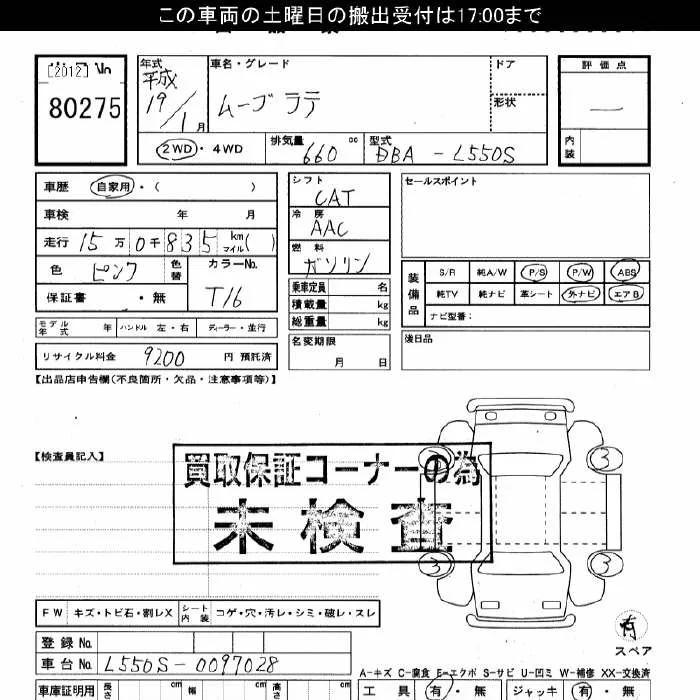 この車両の土曜日の搬出受付は17:00まで
[2012]
80275
年式
平成
19 / 1 月
車名・グレード
ムーブ ラテ
ドア
形状
評価点
—
内装
2WD・4WD
排気量
660 cc
型式
DBA - L550S
車歴 自家用・( )
車検 年 月
走行 15万0千835 km マイル( )
色 ピンク 色替
カラーNo.
T16
保証書 ・無
シフト
CAT
冷房
AAC
燃料
ガソリン
乗車定員 名
積載量 kg
総重量 kg
セールスポイント
装備品
S/R 純A/W P/S P/W ABS
純TV 純ナビ 革シート 外ナビ エアB
ナビ型番:
モデル年式 年 ハンドル 左・右 ディーラー・並行
名変期限
月 日
後日品
リサイクル料金 9200 円 預託済
【出品店申告欄(不良箇所・欠品・注意事項等)】
【検査員記入】
買取保証コーナーの為
未検査
3 3
3 3
有
スペア
FW キズ・トビ石・割レX シート内装 コゲ・穴・汚レ・シミ・破レ・スレ
登録No.
車台No. L550S-0097028
A-キズ C-腐食 E-エクボ S-サビ U-凹ミ W-補修 XX-交換済
車庫証明用 長さ cm 幅 cm 高さ cm
工具 有・無 ジャッキ 有・無